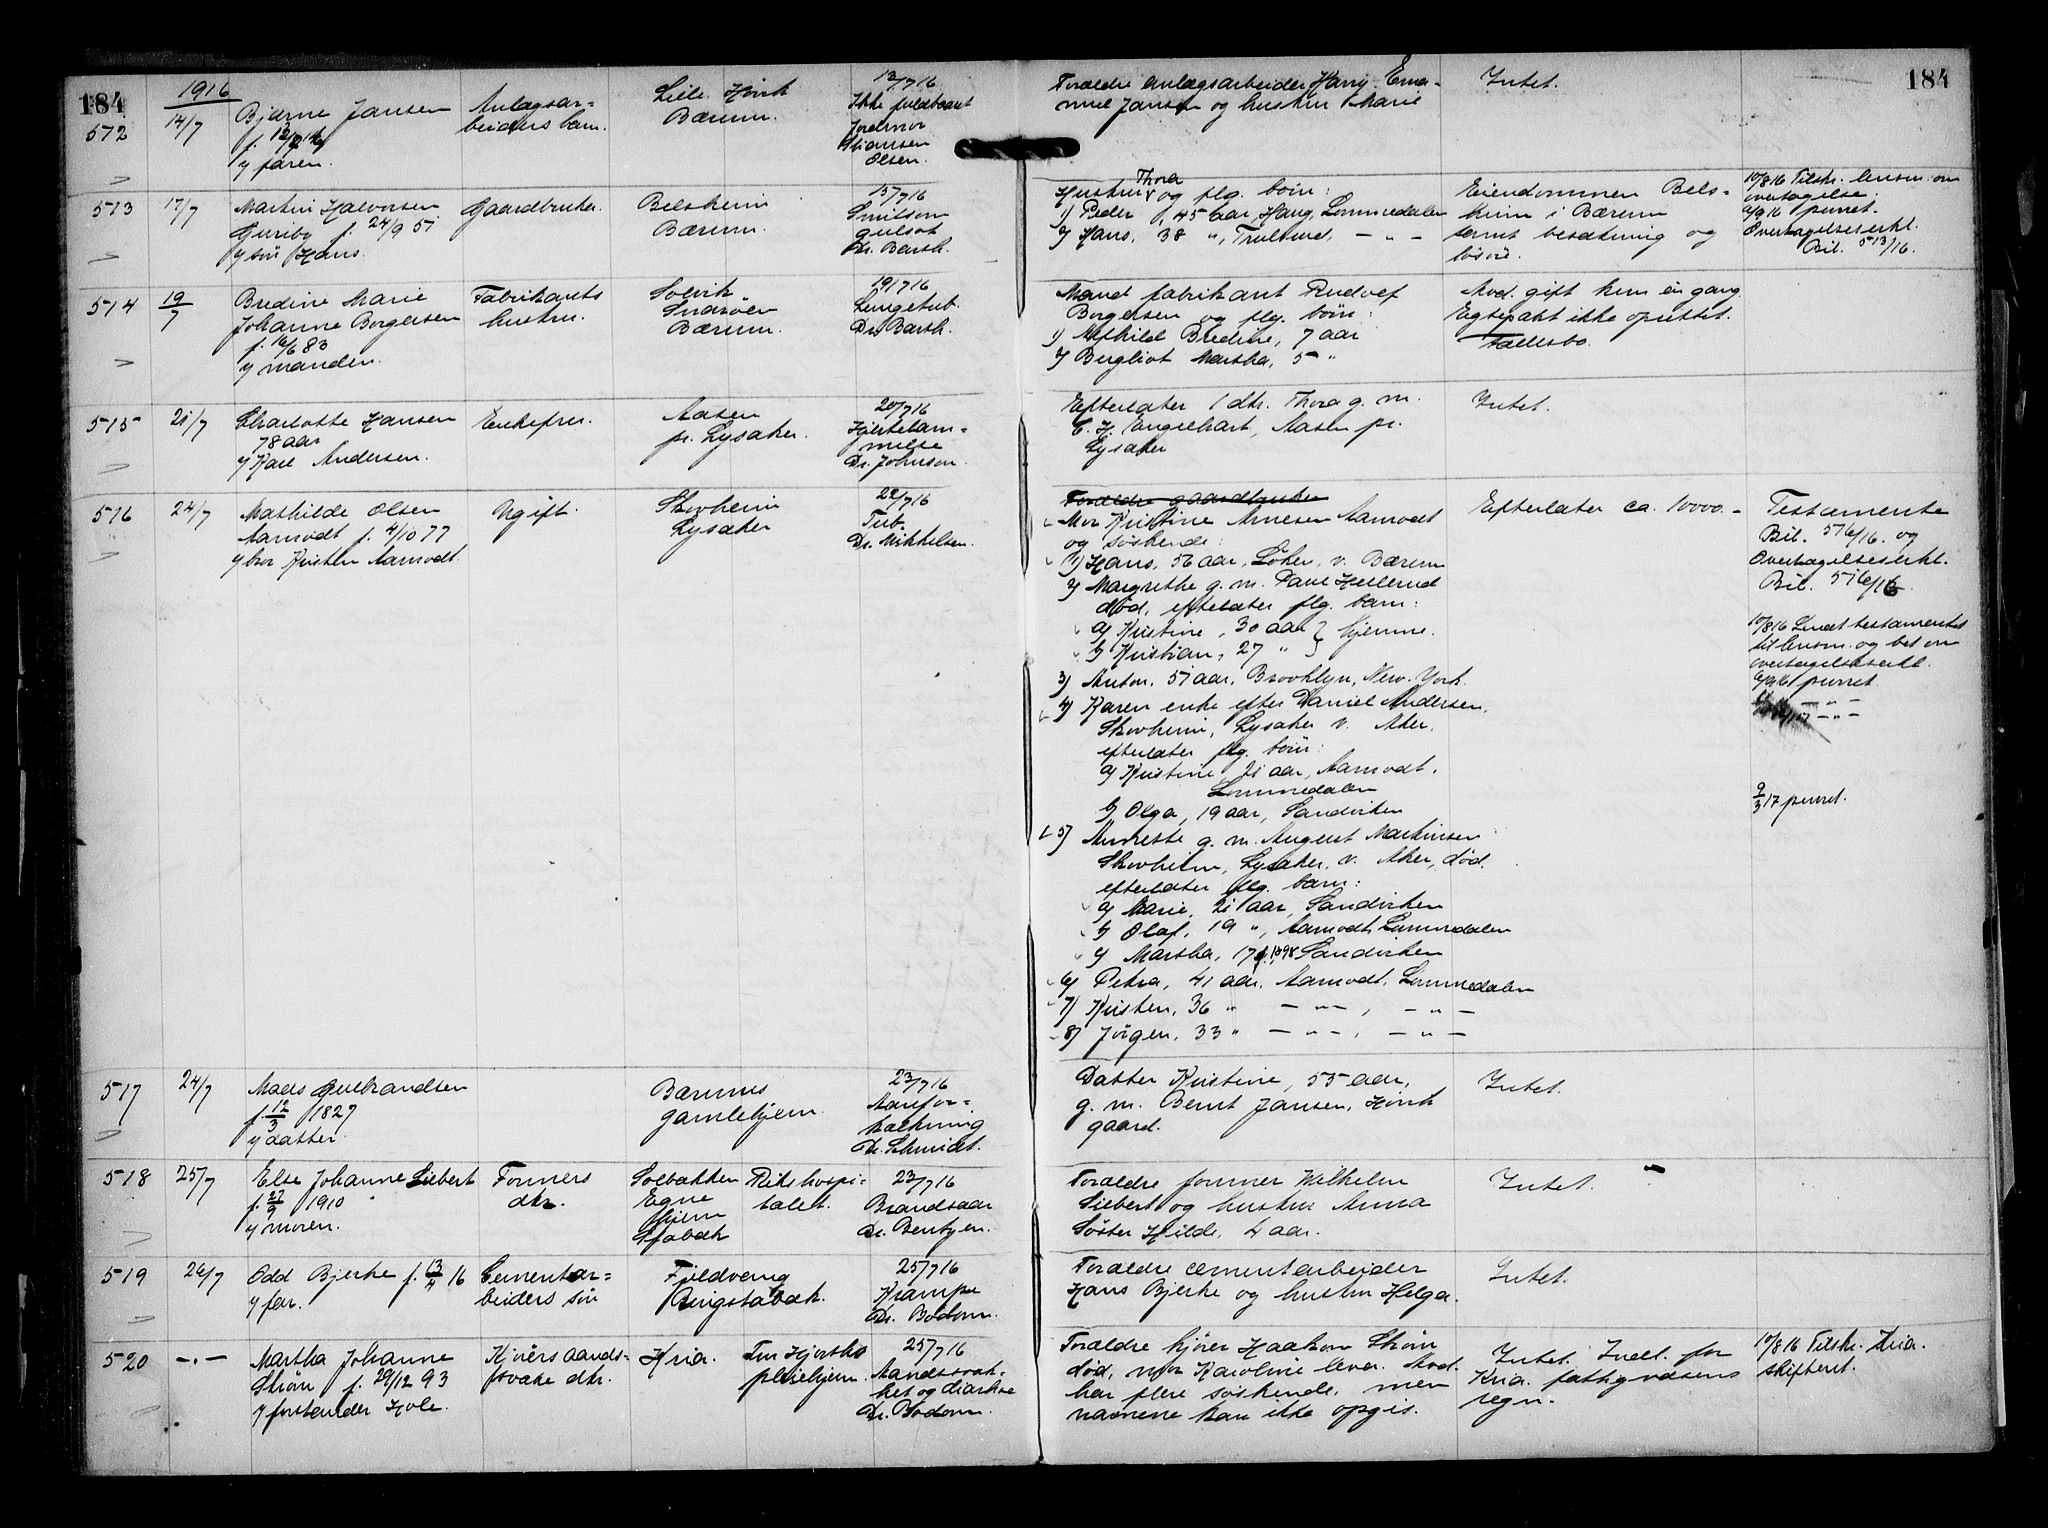 184
1916
184
572
14/7
Bjarne Jansen
f. 12/7 16
v/ faren.
Anlægsar=
beiders barn.
Lille Hörik
Bærum.
13/7 16
Ikke fuldbaaret
Jordmor
Olsen.
Forældre anlægsarbeider Harry Ema-
nuel Jansen og hustru Marie
Intet.
513
17/7
Martin Halvorsen
Guriby f. 24/9 51
v/ sön Hans.
Gaardbruker.
Belsheim
Bærum.
15/7 16
Smitsom
gulsot
Dr. Barth.
Hustru Thora og flg. börn:
1) Peder, 45 aar, Haug, Lommedalen
2) Hans, 38 ", Trulsrud, - " -
Eiendommen Bels-
heim i Bærum
samt besætning og
lösöre.
10/8 16 Tilskr. lensm. om
overtagelse.
6/9 16 purret.
Overtagelseserkl.
Bil. 513/16.
514
19/7
Bredine Marie
Johanne Borgersen
f. 16/6 83
v/ manden.
Fabrikants
hustru.
Solvik
Snaröen
Bærum.
19/7 16
Lungetub.
Dr. Barth.
Mand fabrikant Rudolf
Borgersen og flg. börn:
1) Alfhild Bredine, 7 aar
2) Bergliot Martha, 5 "
Avd. gift kun én gang.
Egtepakt ikke oprettet.
Fællesbo.
515
21/7
Charlotte Hansen
78 aar
v/ Karl Andersen.
Enkefru.
Aasen
pr. Lysaker.
20/7 16
Hjertelam=
melse
Dr. Johnson.
Efterlater 1 dtr. Thora g. m.
C. H. Engelhart, Aasen pr.
Lysaker
Intet.
516
24/7
Mathilde Olsen
Aamodt f. 4/10 77
v/ bror Kristen Aamodt.
Ugift.
Skovheim
Lysaker
22/7 16
Tub.
Dr. Mikkelsen.
Forældre gaardbruker
Mor Kristine Arnesen Aamodt
og söskende:
1) Hans, 56 aar, Löken, v. Bærum
2) Margrethe g. m. Paul Hellerud
död, efterlater flg. barn:
a) Kristine, 30 aar } hjemme.
b) Kristian, 27 "
3) Anton, 51 aar, Brooklyn, New-York.
4) Karen enke efter Daniel Andersen,
Skovheim, Lysaker v. Aker,
efterlater flg. börn:
a) Kristine, 21 aar, Aamodt,
Lommedalen
b) Olga, 19 aar, Sandviken
5) Annette g. m. August Martinsen
Skovheim, Lysaker, v. Aker, död.
efterlater flg. barn:
a) Marie, 21 aar, Sandviken
b) Olaf, 19 ", Aamodt, Lommedalen
c) Martha, 17, f. 1898 Sandviken
6) Petra, 41 aar, Aamodt, Lommedalen
7) Kristen, 36 " - " -, - " -
8) Jörgen, 33 " - " -, - " -
Efterlater ca. 10000.-
Testamente
Bil. 516/16. og
Overtagelseserkl.
Bil. 516/16.
10/8 16 Sendt testamentet
til lensm. og bet om
overtagelseserkl.
6/9 16 purret.
- " -
- " -
9/3 17 purret.
517
24/7
Mads Gulbrandsen
f. 12/3 1827
v/ datter.
Bærums
gamlehjem.
23/7 16
Aarefor=
kalkning
Dr. Schmidt.
Datter Kristine, 55 aar,
g. m. Bernt Jansen, Hörik
gaard.
Intet.
518
25/7
Else Johanne Siebert
f. 27/9 1910
v/ moren.
Formers
dtr.
Solbakken
Egne
Hjem
Stabæk
Rikshospi-
talet.
23/7 16
Brandsaar
Dr. Bentzen.
Forældre former Wilhelm
Siebert og hustru Anna
Söster Hilde, 4 aar.
Intet.
519
26/7
Odd Bjerke f. 13/4 16
v/ far.
Cementar=
beiders sön
Fjeldvang
Ringstabæk.
25/7 16
Krampe
Dr. Bodom.
Forældre cementarbeider
Hans Bjerke og hustru Helga.
Intet.
520
-.-
Martha Johanne
Ström f. 29/12 93
v/ forstander Hole.
Kjörers aands-
svake dtr.
Kria.
Em. Hjorths
pleiehjem.
25/7 16
Aandssvak-
het og diarhoe
Dr. Bodom.
Forældre kjörer Haakon Ström
död, mor Karoline lever. Avd.
har flere söskende, men
navnene kan ikke opgis.
Intet. Indl. for
Kria. fattigvæsens
regn.
10/8 16 Tilskr. Kria.
skifterett.